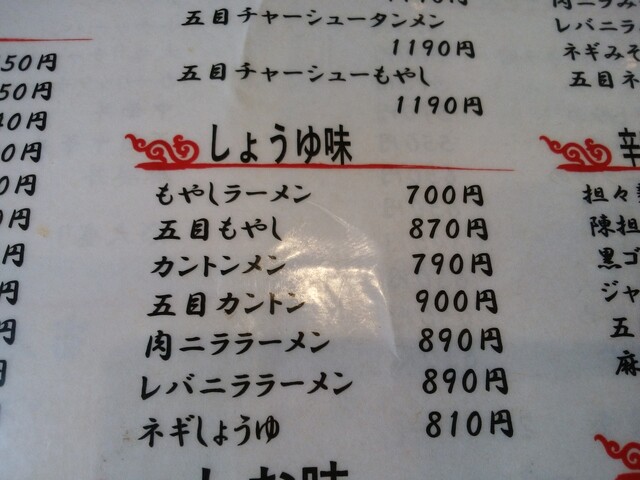 五目チャーシュータンメン
1190円
五目チャーシューもやし
1190円
しょうゆ味
もやしラーメン 700円
五目もやし 870円
カントンメン 790円
五目カントン 900円
肉ニララーメン 890円
レバニララーメン 890円
ネギしょうゆ 810円
50円
50円
40円
0円
0円
0円
円
円
円
円
レバニララ
ネギみそ
五目ネ
辛
担々
陳担
黒ゴ
ジャ
五
麻